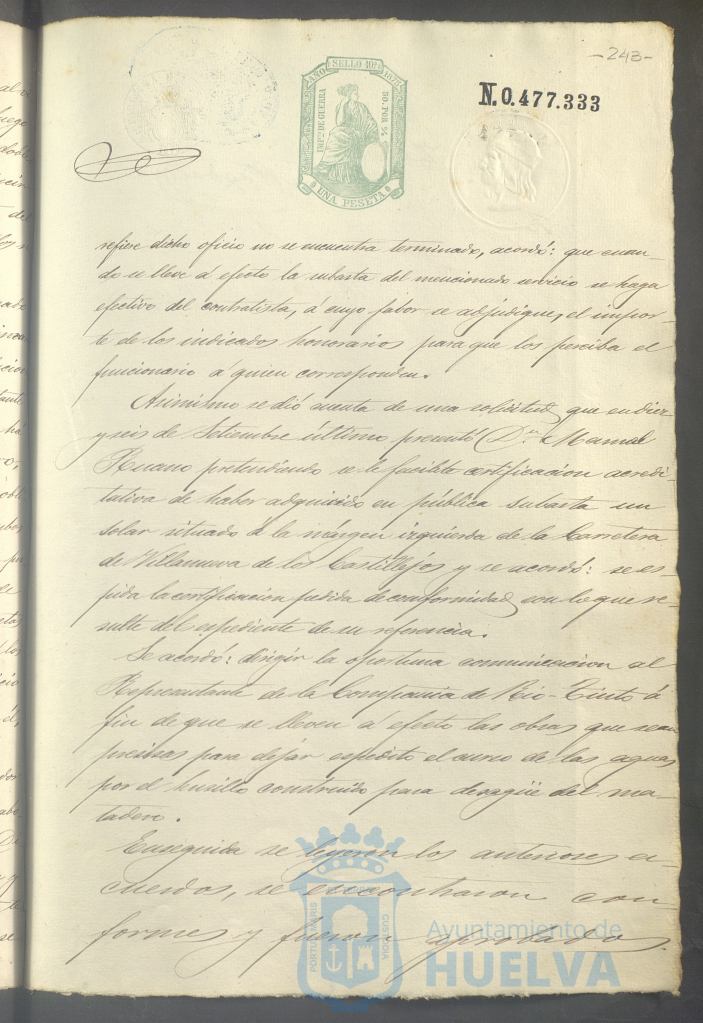 -243-
AÑO SELLO 10º 1877
IMPTO DE GUERRA
50 POR %
UNA PESETA
N.0.477.333
refiere dicho oficio no se encuentra terminado, acordó: que cuan-
do se lleve á efecto la subasta del mencionado servicio se haga
efectivo del contratista, á cuyo fabor se adjudique, el impor-
te de los indicados honorarios para que los perciba el
funcionario á quien corresponden.
Asimismo se dió cuenta de una solicitud que en diez
y seis de Setiembre último presentó Dn. Manuel
Ruano pretendiendo se le facilite certificacion acredi-
tativa de haber adquirido en pública subasta un
solar situado á la márgen izquierda de la Carretera
de Villanueva de los Castillejos y se acordó: se es-
pida la certificacion pedida de conformidad con lo que re-
sulte del espediente de su referencia.
Se acordó: dirigir la oportuna comunicacion al
Representante de la Compañia de Rio-Tinto á
fin de que se lleven á efecto las obras que sean
precisas para dejar espedito el curso de las aguas
por el husillo construido para desagüe del ma-
tadero.
Enseguida se leyeron los anteriores a-
cuerdos, se encontraron con
formes y fueron aprobados.
PORTUS MARIS
CUSTODIA
Ayuntamiento de
HUELVA